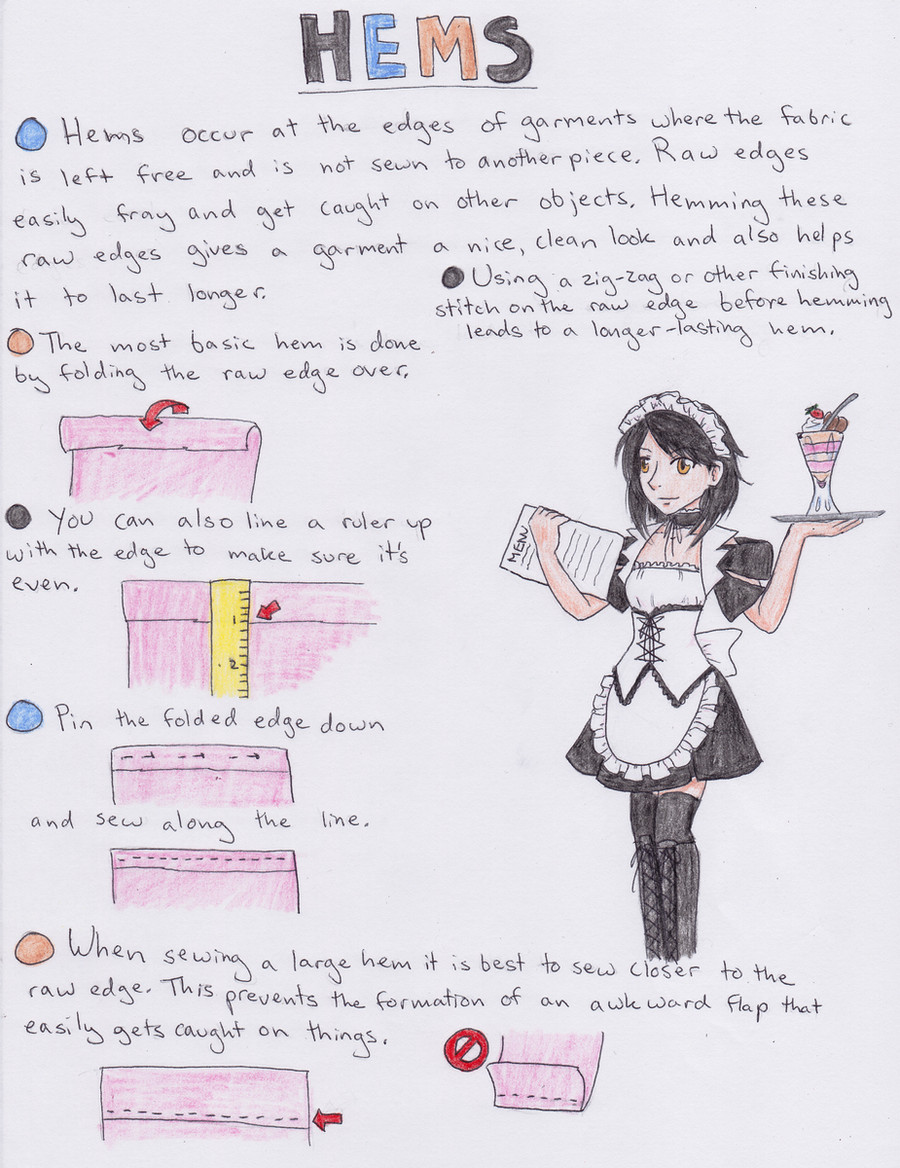 HEMS
Hems occur at the edges of garments where the fabric
is left free and is not sewn to another piece. Raw edges
easily fray and get caught on other objects. Hemming these
raw edges gives a garment a nice, clean look and also helps
it to last longer.
Using a zig-zag or other finishing
stitch on the raw edge before hemming
leads to a longer-lasting hem.
The most basic hem is done
by folding the raw edge over.
You can also line a ruler up
with the edge to make sure it's
even.
1
2
MENU
Pin the folded edge down
and sew along the line.
When sewing a large hem it is best to sew closer to the
raw edge. This prevents the formation of an awkward flap that
easily gets caught on things.